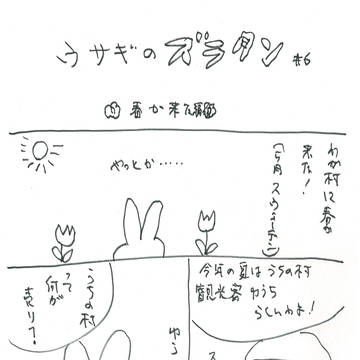 ウサギのズラタン #6
春が来た編
わが村に春が
来た!
(5月 スウェーデン)
やっとか・・・・・
今年の夏はうちの村
観光客ゆうち
らしいわよ!
うちの村
って
何が
売りで?
ゆう
ス